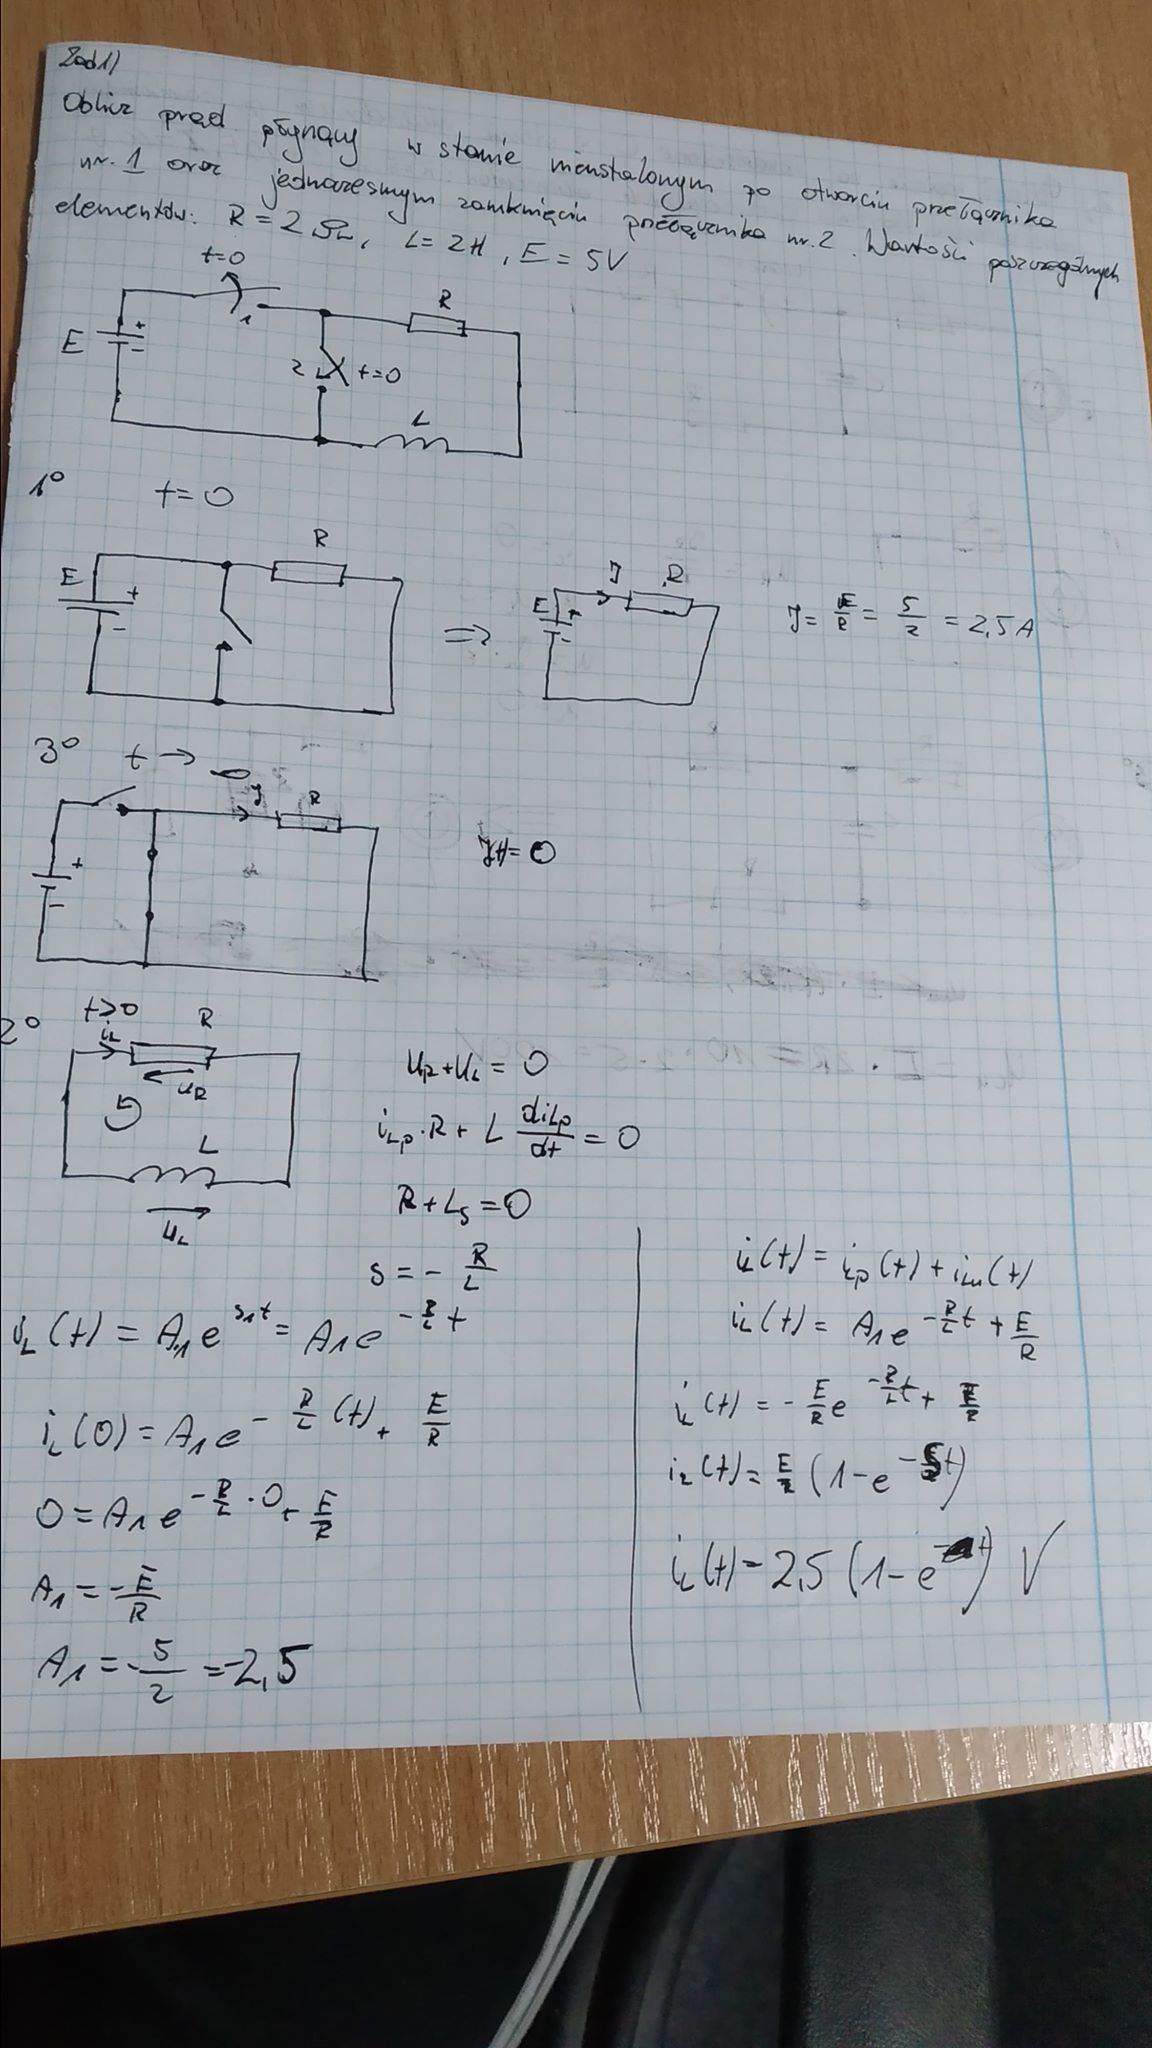 Zad 1)
Oblicz prąd płynący w stanie nieustalonym po otwarciu przełącznika
nr. 1 oraz jednoczesnym zamknięciu przełącznika nr. 2. Wartości poszczególnych
elementów: R = 2 Ω, L = 2H, E = 5V
t=0
1
R
E
+
-
2
t=0
L
1°
t = 0
R
E
+
-
⇒
E
+
-
J
R
J = E/R = 5/2 = 2,5A
3°
t → ∞
J
R
+
-
= 0
2°
t≥0
iL
R
uR
L
uL
uR + uL = 0
iLp · R + L diLp/dt = 0
R + Ls = 0
s = - R/L
iL(t) = A1 e^s1t = A1 e^-R/L t
iL(0) = A1 e^-R/L (t) + E/R
0 = A1 e^-R/L · 0 + E/R
A1 = -E/R
A1 = -5/2 = -2,5
iL(t) = iLp(t) + iLu(t)
iL(t) = A1 e^-R/L t + E/R
iL(t) = - E/R e^-R/L t + E/R
iL(t) = E/R (1 - e^- t)
iL(t) = 2,5 (1 - e^- t) V